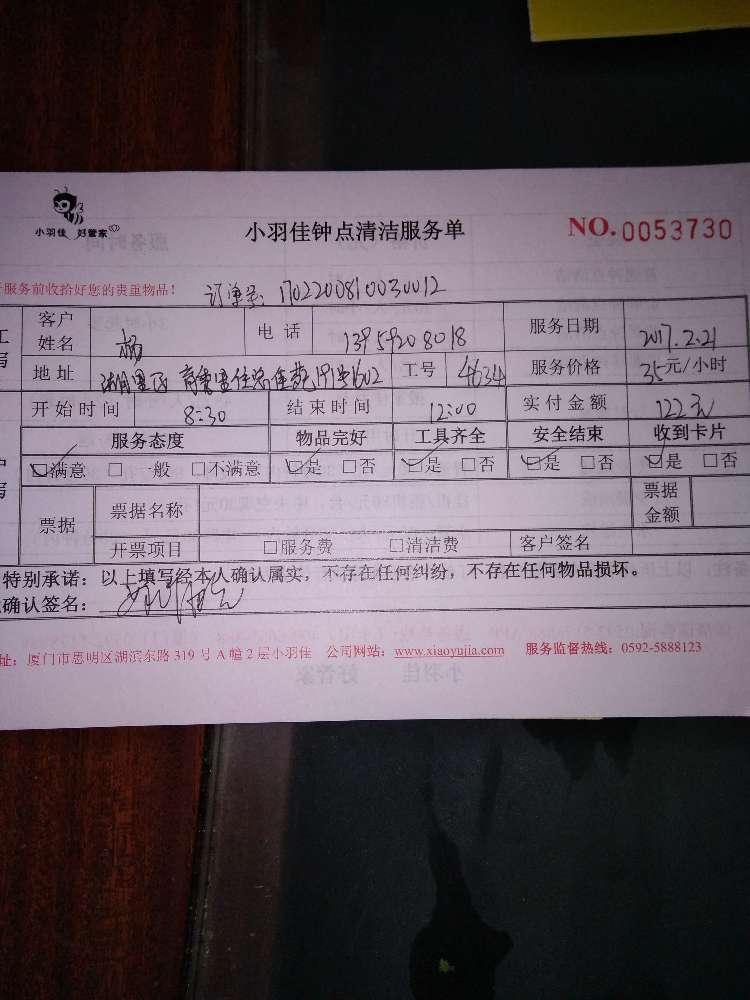 小羽佳 好管家
小羽佳钟点清洁服务单
NO.0053730
服务前收拾好您的贵重物品！ 订单号：1702200810030012
客户姓名 杨 电话 13959208018 服务日期 2017.2.21
地址 湖里区 1602 工号 4634 服务价格 35元/小时
开始时间 8:30 结束时间 12:00 实付金额 122元
服务态度 物品完好 工具齐全 安全结束 收到卡片
☑满意 □一般 □不满意 ☑是 □否 ☑是 □否 ☑是 □否 ☑是 □否
票据 票据名称 票据金额
开票项目 □服务费 □清洁费 客户签名
特别承诺：以上填写经本人确认属实，不存在任何纠纷，不存在任何物品损坏。
确认签名：
址：厦门市思明区湖滨东路 319 号 A 幢 2 层小羽佳 公司网站：www.xiaoyujia.com 服务监督热线：0592-5888123